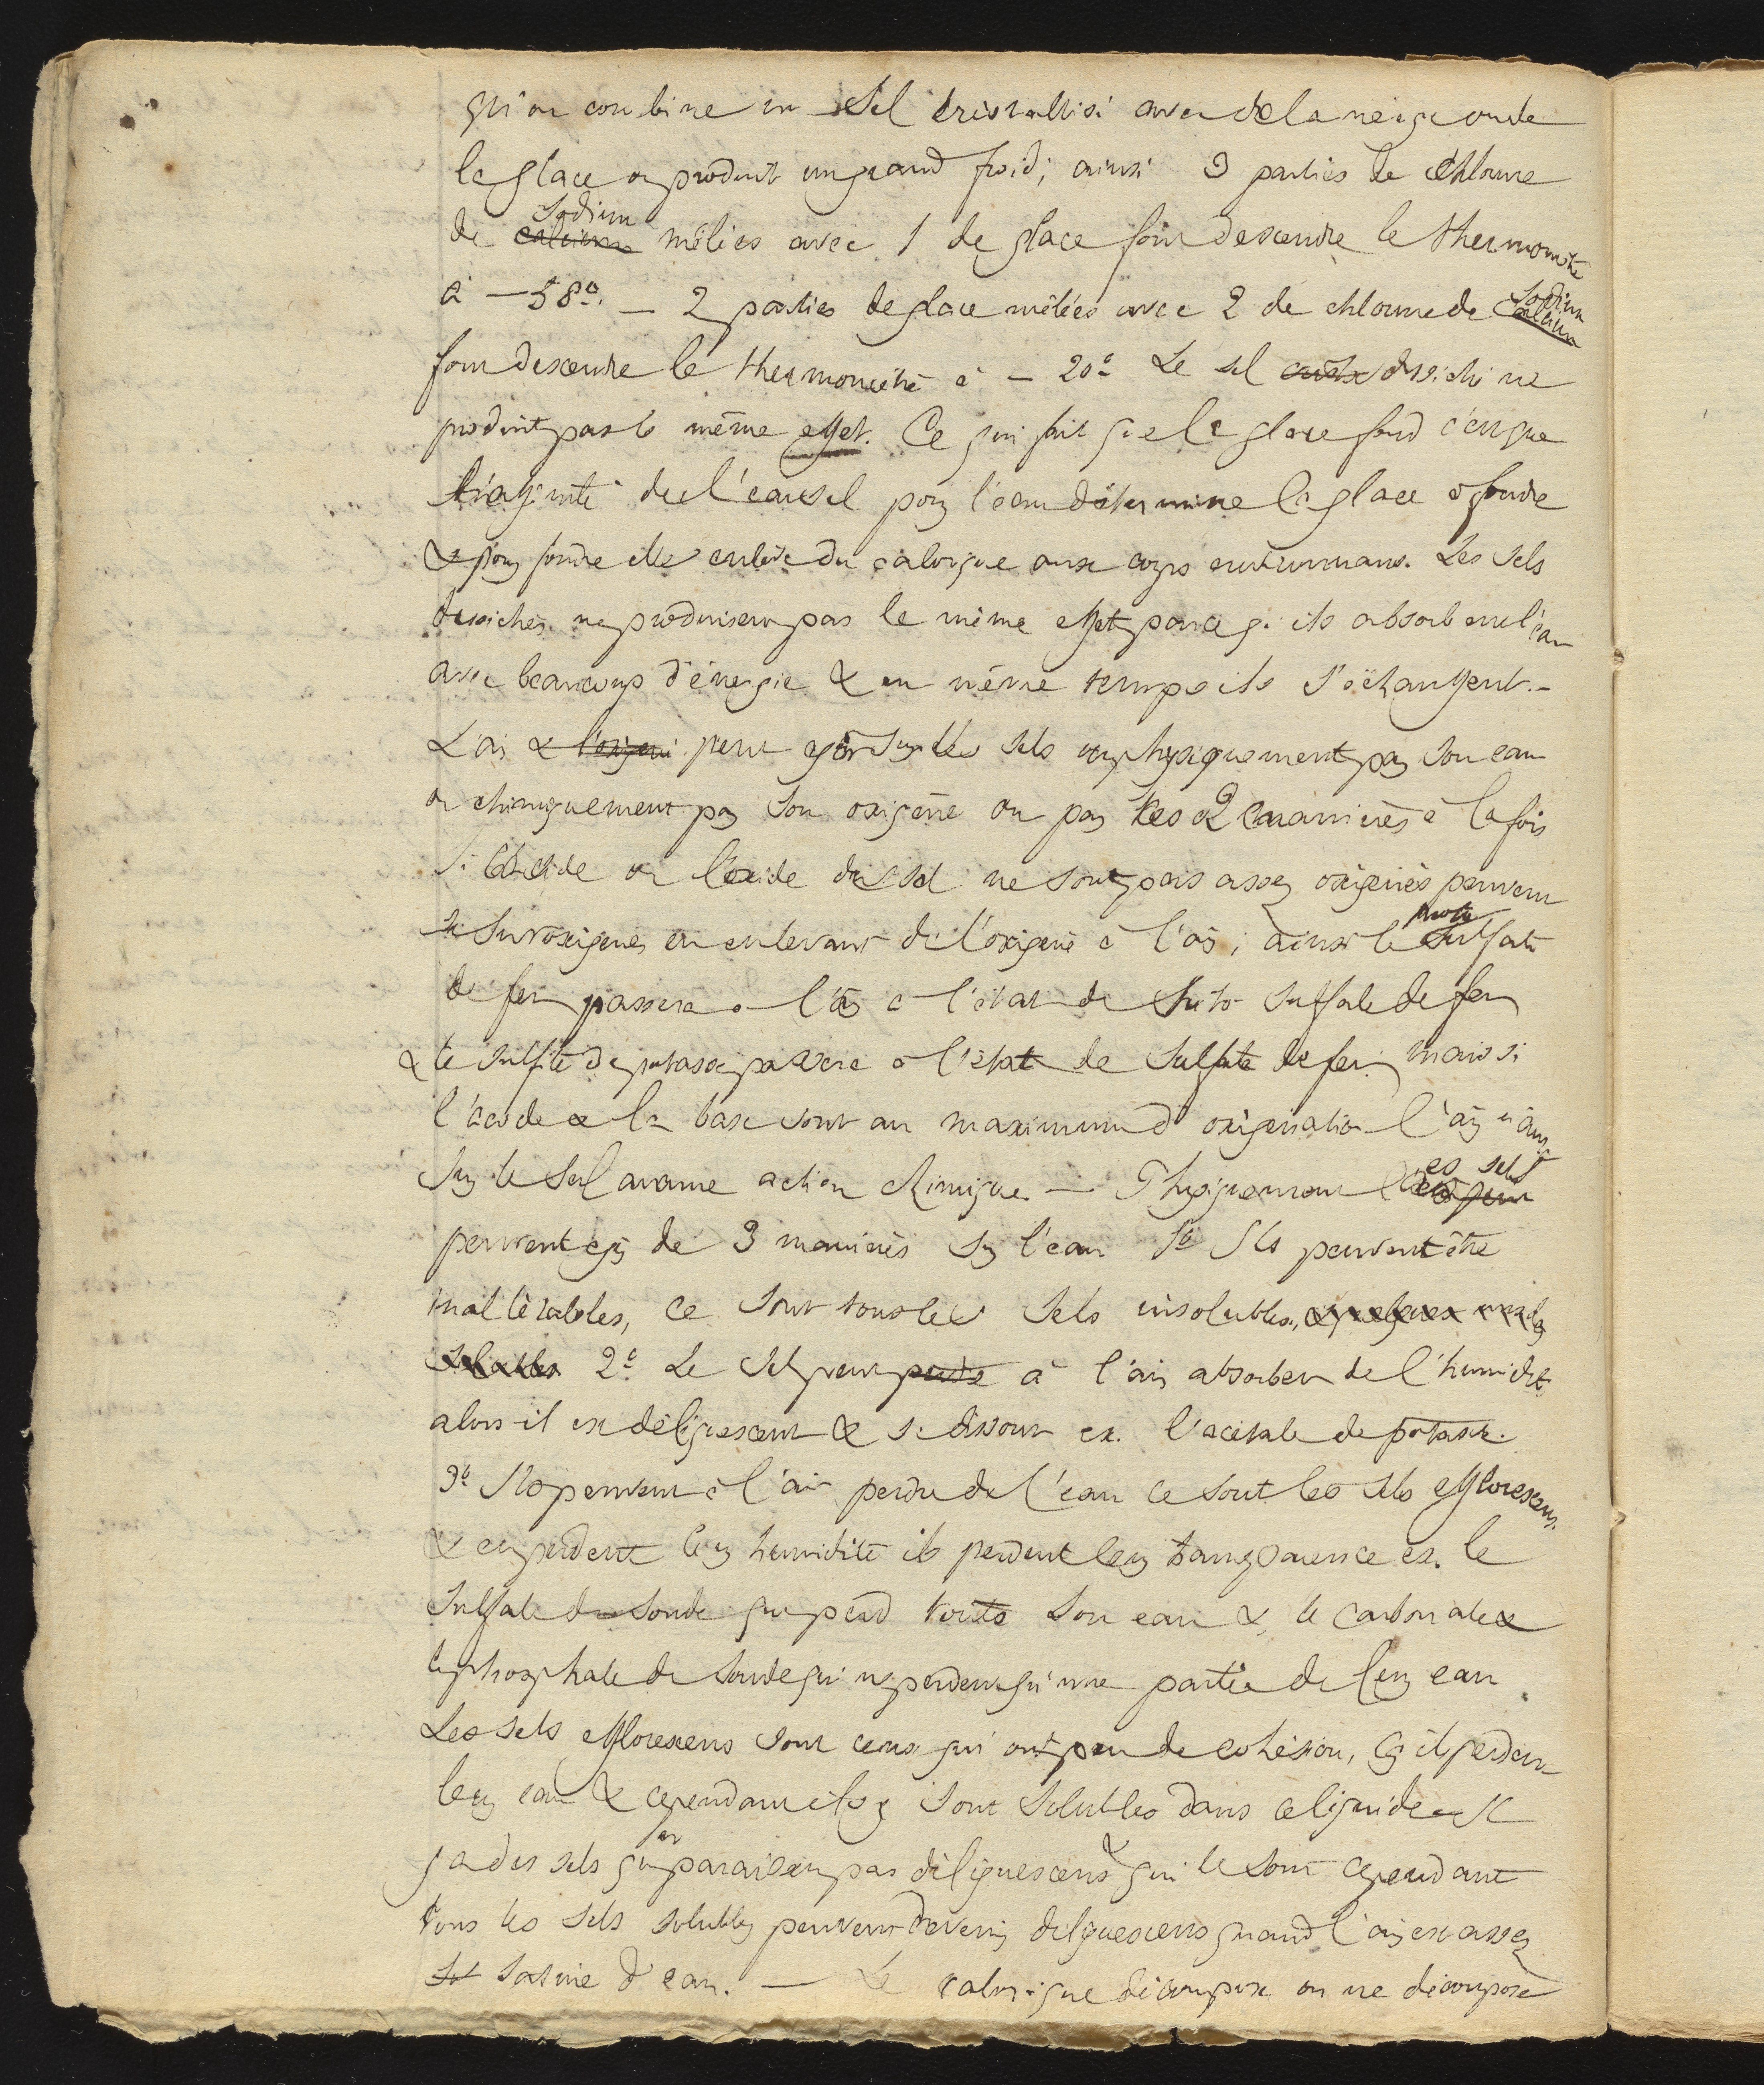 qu'on combine un sel cristallisé avec de la neige ou de
la glace on produit un grand froid; ainsi 3 parties de chlorure
de calcium Sodium mêlées avec 1 de glace font descendre le thermomètre
à – 58°. — 2 parties de glace mêlées avec 2 de chlorure de calcium Sodium
font descendre le thermomètre à – 20° Le sel desséché ne
produit pas le même effet. Ce qui fait que la glace fond c'est que
l'affinité du sel pour l'eau détermine la glace à fondre
& pour fondre elle enlève du calorique aux corps environnans. Les sels
desséchés ne produisent pas le même effet parce qu'ils absorbent l'eau
avec beaucoup d'énergie & en même temps ils s'échauffent. –
L'air & l'oxigene peut agir sur les sels ou physiquement par son eau
ou chimiquement par son oxigène ou par les 2 manières à la fois
Si l'acide ou l'oxide du sel ne sont pas assez oxigénés peuvent
se suroxigener en enlevant de l'oxigene à l'air; ainsi le proto sulfate
de fer passera à l'air à l'état de trito sulfate de fer
& le sulfite de potasse passera à l'état de sulfate de fer, mais si
l'acide & la base sont au maximum d'oxigenation l'air n'aura
sur le sel aucune action chimique — Physiquement les sels
peuvent agir de 3 manières sur l'eau 1° Ils peuvent être
inaltérables, ce sont tous les sels insolubles, & quelques uns des
solubles 2° Le sel peut perdre à l'air absorber de l'humidité
alors il est déliquescent & se dissout ex. l'acétate de potasse.
3° Ils peuvent à l'air perdre de l'eau ce sont les sels efflorescens.
& en perdant leur humidité ils perdent leur transparence ex. le
Sulfate de soude qui perd toute son eau & le carbonate &
le phosphate de soude qui ne perdent qu'une partie de leur eau
Les sels efflorescens sont ceux qui ont peu de cohésion, car ils perdent
leur eau & cependant ils sont solubles dans ce liquide — Il
y a des sels qui ne paraissent pas déliquescens & qui le sont cependant
tous les sels solubles peuvent devenir déliquescens quand l'air est assez
sat saturé d'eau. — Le calorique décompose ou ne décompose